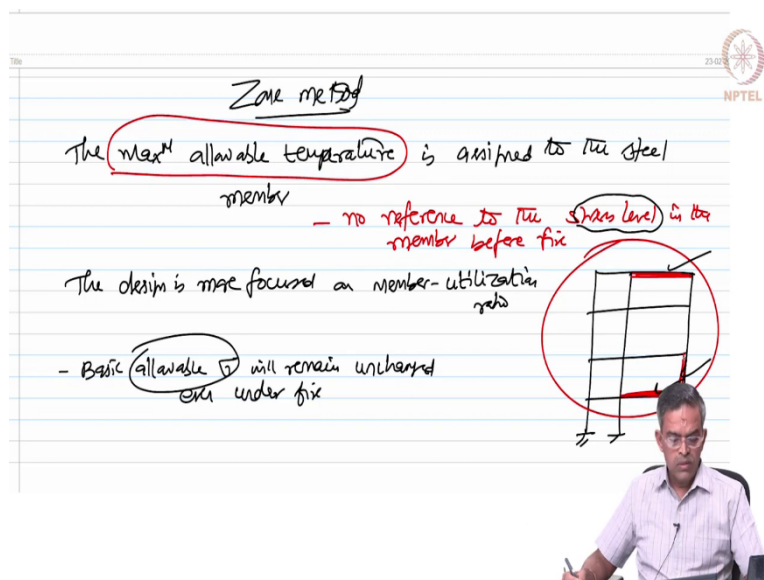 Title
23-02
NPTEL
Zone method
The max^m allowable temperature is assigned to the steel
member
– no reference to the stress level in the
member before fire
The design is more focused on member-utilization
ratio
– Basic allowable σ will remain unchanged
even under fire